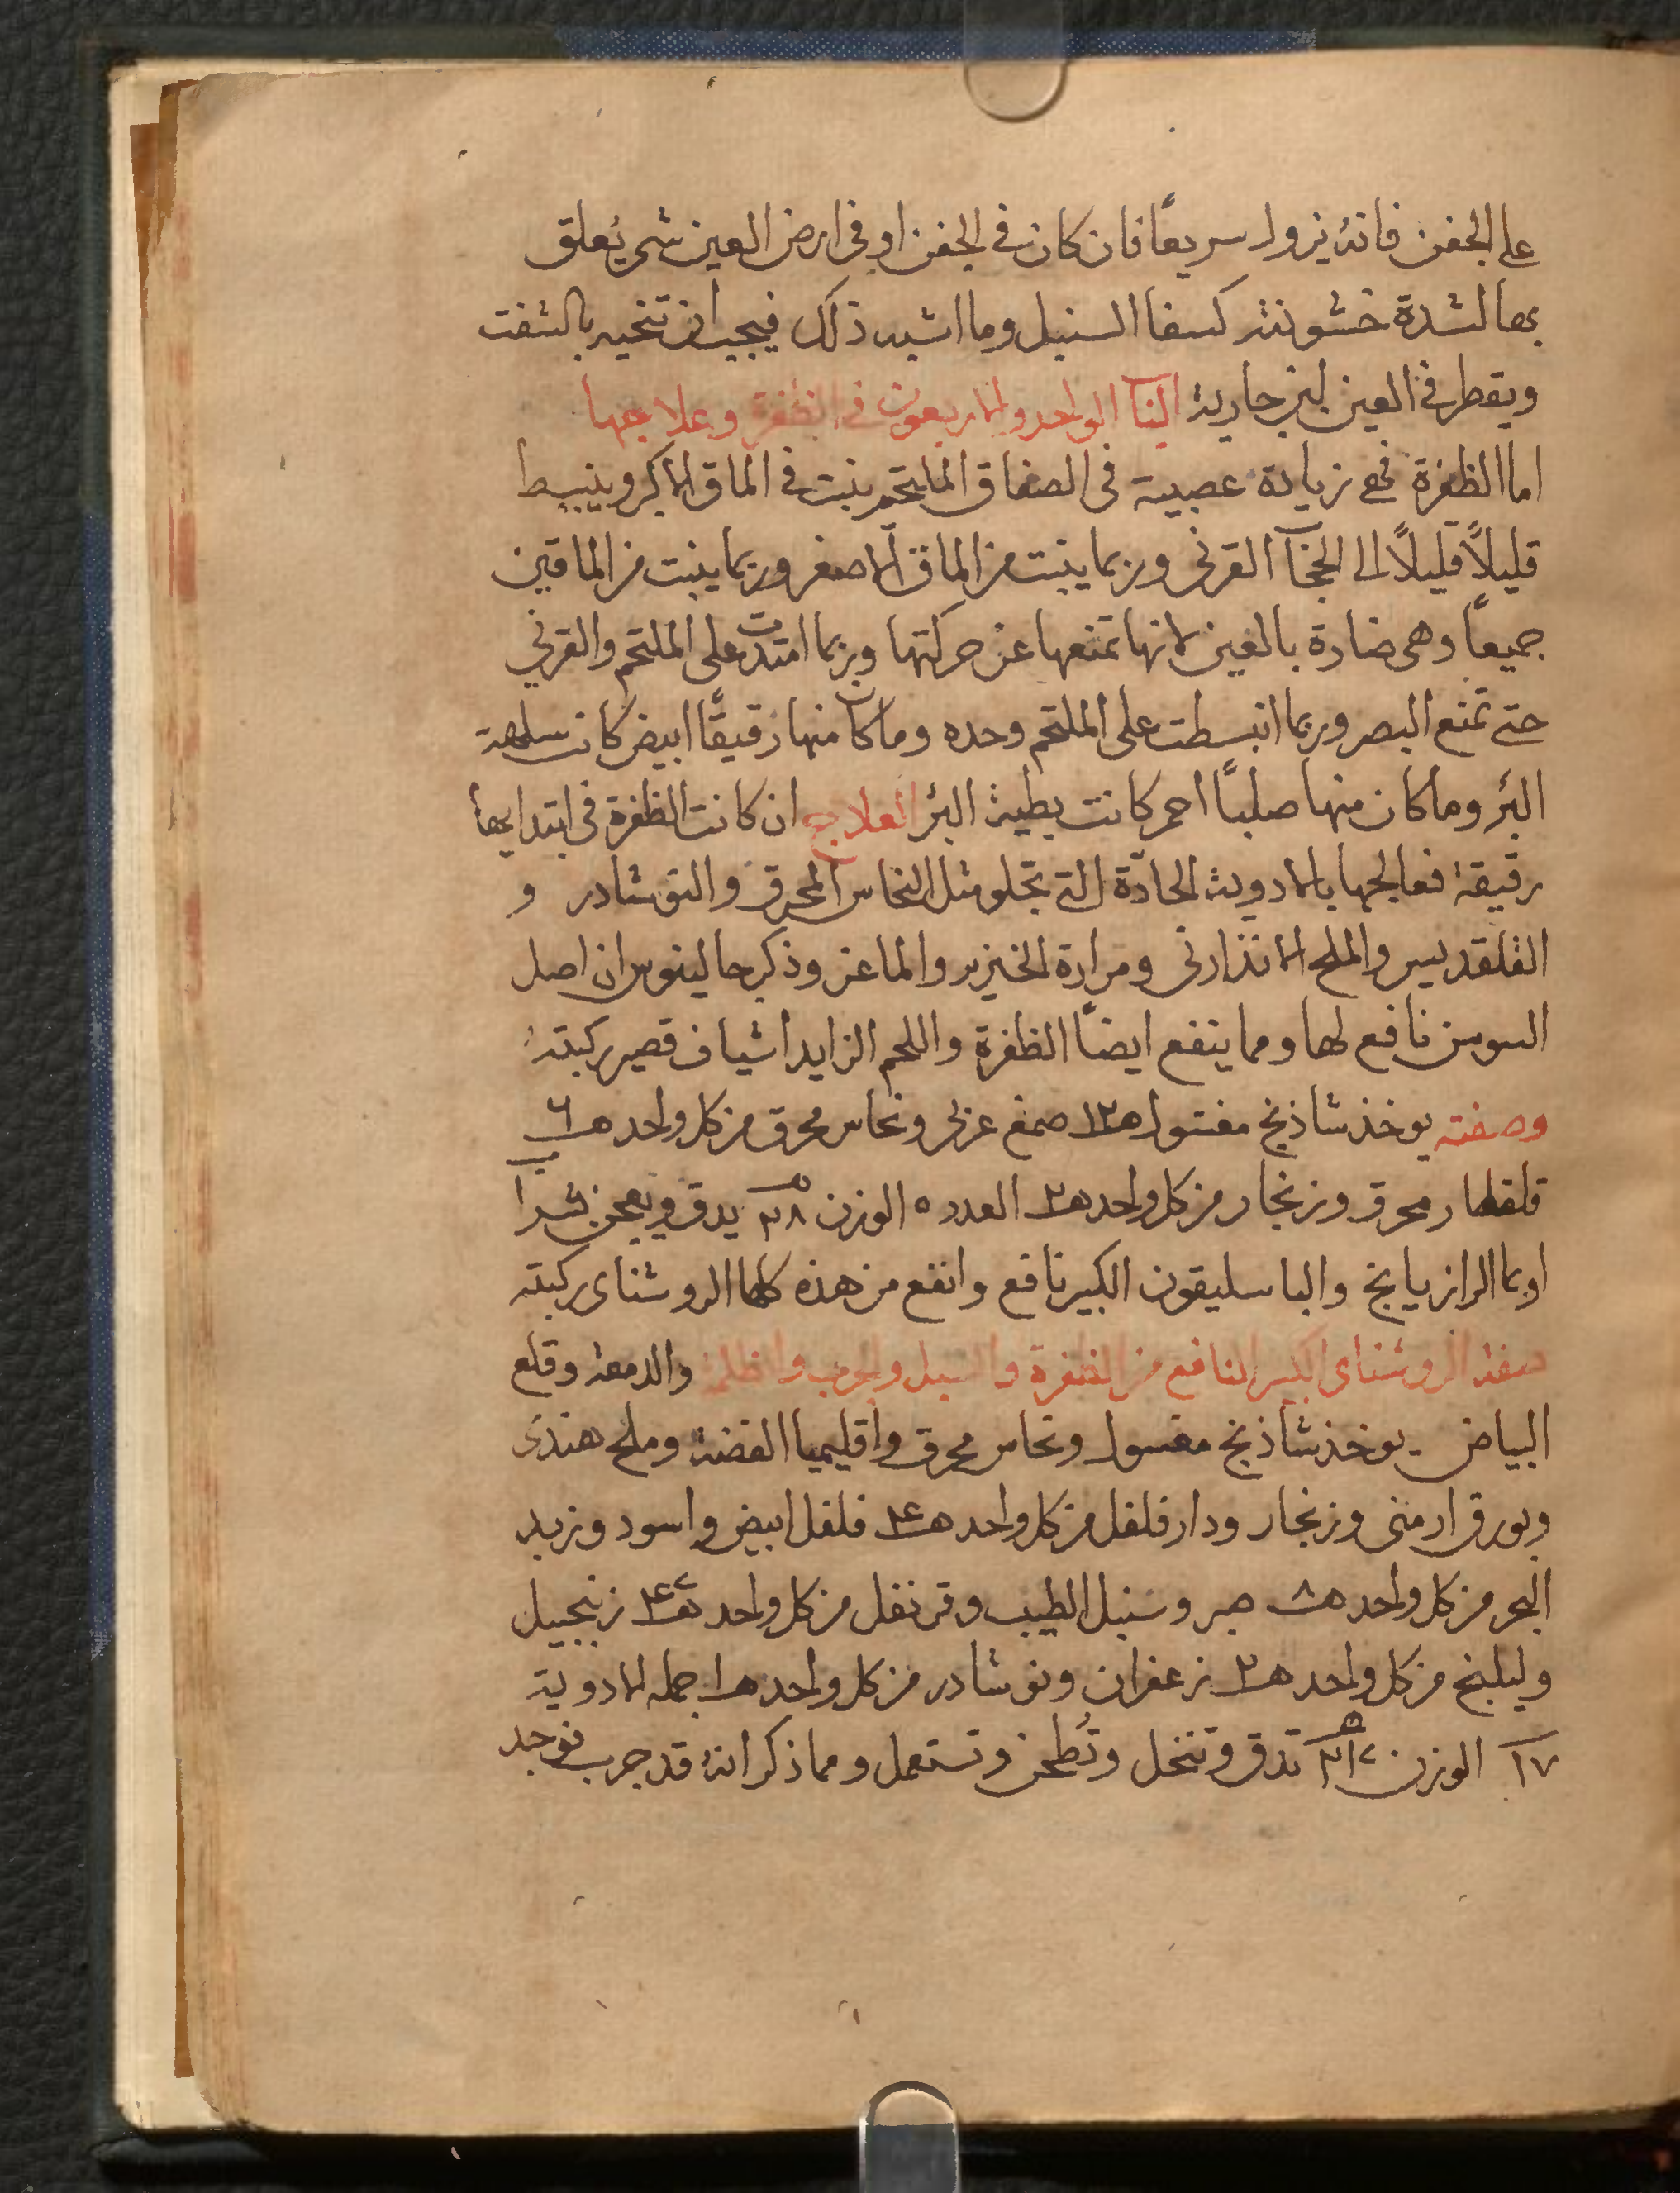 على الجفن فانه يزول سريعًا فان كان في الجفن او في ارض العين شي يُعلق
بها لشدة خشونته كسفا السنبل وما اشبه ذلك فيجب ان تنحيه بالشفت
ويقطر في العين لبن جارية الباب الواحد والاربعون في الظفرة وعلاجها
اما الظفرة فهي زيادة عصبية في الصفاق الملتحم ينبت في الماق الاكبر وينبسط
قليلًا قليلًا الى الحجاب القرني وربما ينبت من الماق الاصغر وربما ينبت من الماقين
جميعًا وهي ضارة بالعين لانها تمنعها عن حركتها وربما امتدت على الملتحم والقرني
حتى تمنع البصر وربما انبسطت على الملتحم وحده وما كان منها رقيقًا ابيض كانت سهلة
البرٔ وما كان منها صلبًا احمر كانت بطية البرٔ العلاج ان كانت الظفرة في ابتدايها
رقيقة فعالجها بالادوية الحادّة التي تجلو مثل النحاس المحرق والنوشادر و
القلقديس والملح الاندراني ومرارة الخنزير والماعز وذكر جالينوس ان اصل
السوسن نافع لها ومما ينفع ايضًا الظفرة واللحم الزايد اشياف قصير ركبته
وصفته يوخذ شاذنج مغسول ه١٢ صمغ عربي ونحاس محرق من كل واحد ه٦
قلقطار محرق وزنجار من كل واحد ه٢ العدد ٥ الوزن ٢٨ يدق ويعجن بشراب
او بما الرازيانج والباسليقون الكبير نافع وانفع من هذه كلها الروشناي ركبته
صفة الروشناي الكبير النافع من الظفرة والسبل والجرب والظلمة والدمعة وقلع
البياض يوخذ شاذنج مغسول ونحاس محرق واقليميا الفضة وملح هندي
وبورق ارمني وزنجار ودار فلفل من كل واحد ه٤ فلفل ابيض واسود وزبد
البحر من كل واحد ه٨ صبر وسنبل الطيب وقرنفل من كل واحد ه٤ زنجبيل
وليلنج من كل واحد ه٢ زعفران ونوشادر من كل واحد ه١ جملة الادوية
١٧ الوزن تدق وتنخل وتُطحن وتستعمل ومما ذكر انه قد جرب فوجد